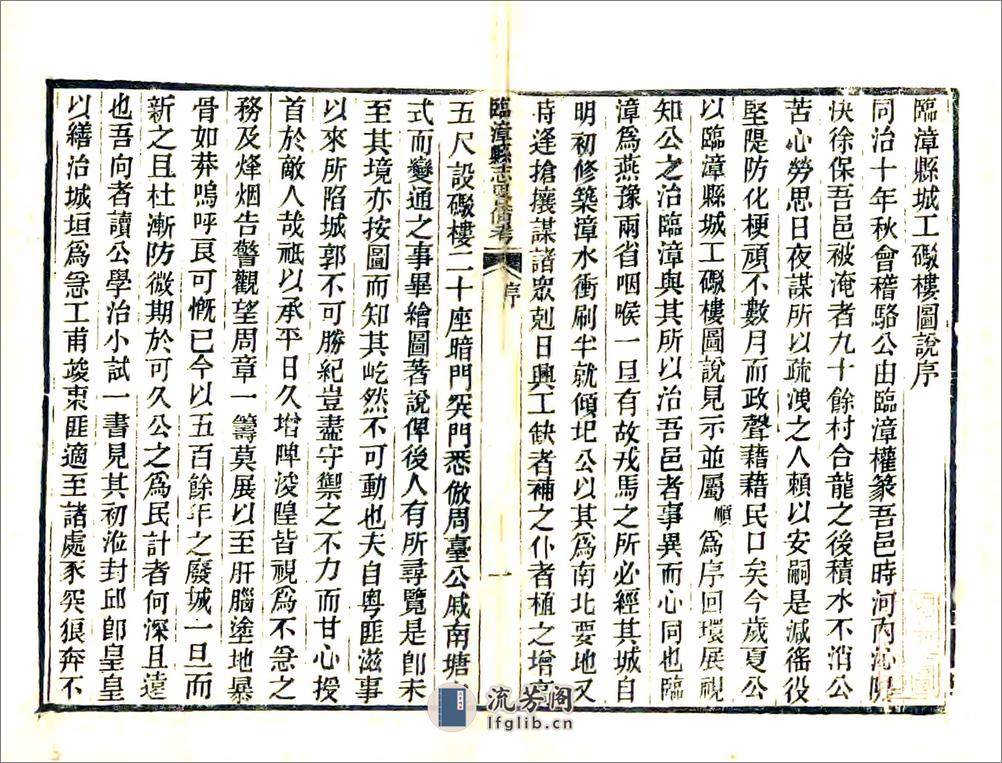 臨漳縣城工礮樓圖說序
同治十年秋會稽駱公由臨漳權篆吾邑時河內沁隄
快徐保吾邑被淹者九十餘村合龍之後積水不消公
苦心勞思日夜謀所以疏洩之人賴以安嗣是減徭役
堅隄防化梗頑不數月而政聲藉藉民口矣今歲夏公
以臨漳縣城工礮樓圖說見示並屬順為序回環展視
知公之治臨漳與其所以治吾邑者事異而心同也臨
漳為燕豫兩省咽喉一旦有故戎馬之所必經其城自
明初修築漳水衝刷半就傾圮公以其為南北要地又
時逢搶攘謀諸眾剋日興工缺者補之仆者植之增高
臨漳縣志畧備考 序 一
五尺設礮樓二十座暗門突門悉倣周臺公戚南塘
式而變通之事畢繪圖著說俾後人有所尋覽是卽未
至其境亦按圖而知其屹然不可動也夫自粵匪滋事
以來所陷城郭不可勝紀豈盡守禦之不力而甘心授
首於敵人哉祗以承平日久增陴浚隍皆視為不急之
務及烽烟告警觀望周章一籌莫展以至肝腦塗地暴
骨如莽嗚呼良可慨已今以五百餘年之廢城一旦而
新之且杜漸防微期於可久公之為民計者何深且遠
也吾向者讀公學治小試一書見其初涖封邱卽皇皇
以繕治城垣為急工甫竣東匪適至諸處豕突狼奔不
流芳阁
lfglib.cn